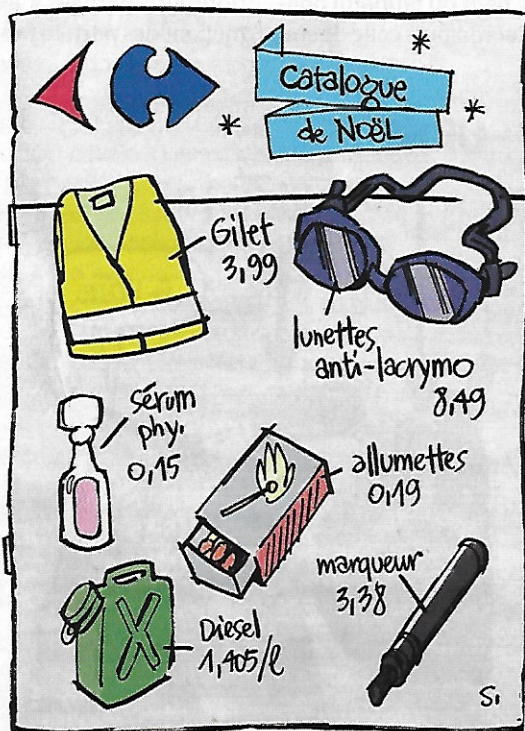 Catalogue
de NOËL
Gilet
3,99
lunettes
anti-lacrymo
8,49
sérum
phy.
0,15
allumettes
0,19
marqueur
3,38
Diesel
1,405/l
S.